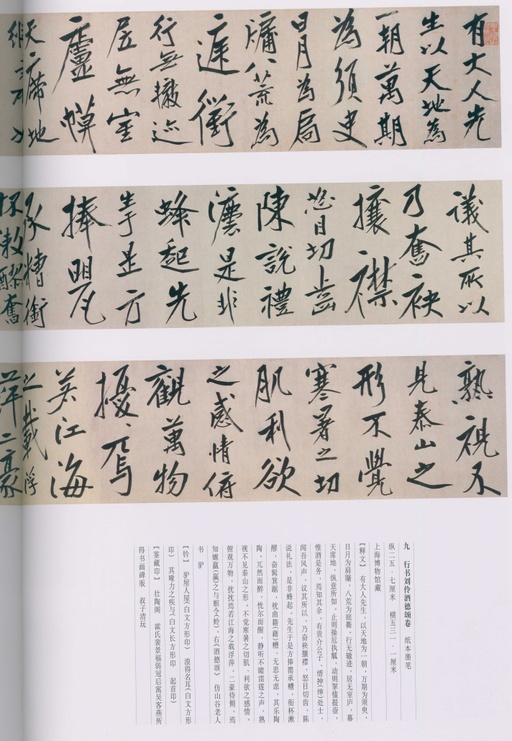 有大人先
生以天地為
一朝萬期
為須臾
日月為扃
牖八荒為
庭衢
行無轍迹
居無室
廬幙
天席地
議其所以
乃奮袂
攘襟
怒目切齒
陳說禮
灋是非
蜂起先
生于是方
捧甖
承槽銜
杯漱醪奮
熟視不
見泰山之
形不覺
寒暑之切
肌利欲
之感情俯
觀萬物
擾〻焉
若江海
之載浮
萍二豪
九 行书刘伶酒德颂卷 纸本墨笔
纵二五·七厘米 横五三一·一厘米
上海博物馆藏
【释文】有大人先生，以天地为一朝，万期为须臾，
日月为扃牖，八荒为庭衢。行无辙迹，居无室庐，幕
天席地，纵意所如。止则操卮执觚，动则挈榼提壶，
惟酒是务，焉知其余。有贵介公子，搢绅处士，
闻吾风声，议其所以，乃奋袂攘襟，怒目切齿，陈
说礼法，是非蜂起。先生于是方捧罂承槽，衔杯漱
醪，奋髯箕踞，枕曲藉糟，无思无虑，其乐陶
陶。兀然而醉，恍尔而醒，静听不闻雷霆之声，熟
视不见泰山之形，不觉寒暑之切肌，利欲之感情，
俯观万物，扰扰焉若江海之载浮萍，二豪侍侧，焉
知蜾蠃(蠃)之与螟令(蛉)。右《酒德颂》 仿山谷老人
书 驴
【钤】驴屋人屋(白文方形印) 浪得名耳(白文方形
印) 其喙力之疾与(白文长方形印 起首印)
【鉴藏印】壮陶阁 霍氏裴景福弱冠后寓吴客燕所
得书画碑版 叔子清玩